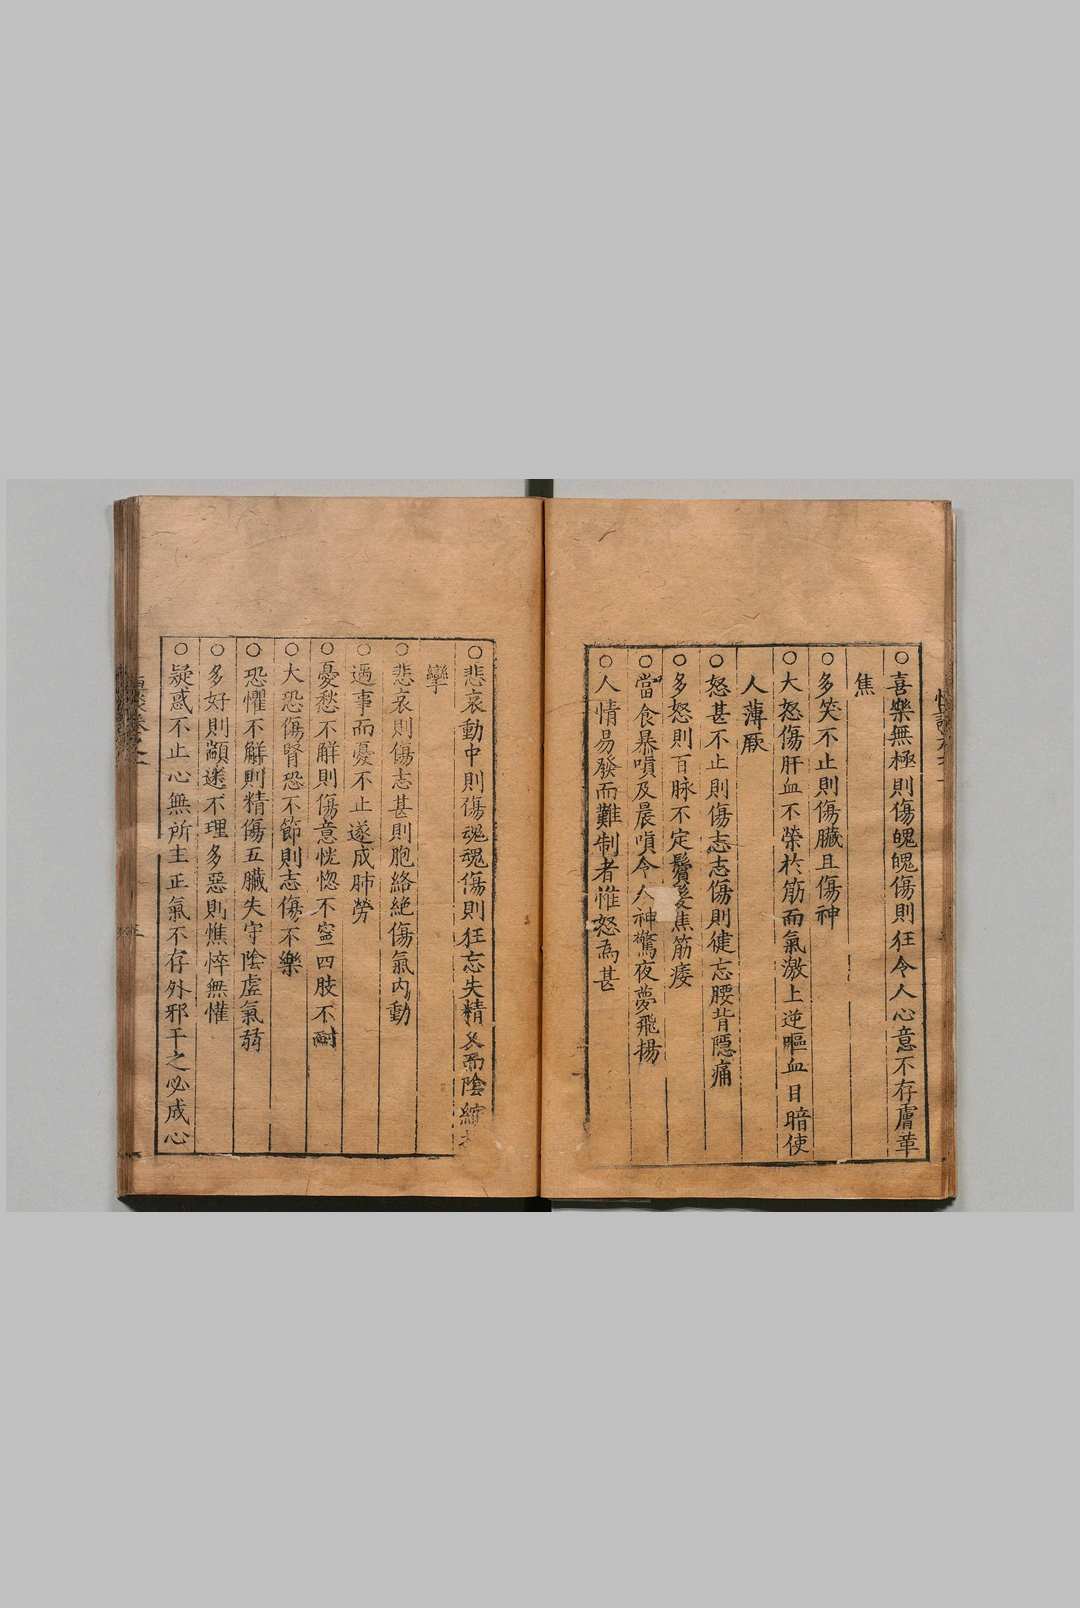 ○喜樂無極則傷魄魄傷則狂令人心意不存膚革
焦
○多笑不止則傷臟且傷神
○大怒傷肝血不榮於筋而氣激上逆嘔血目暗使
人薄厥
○怒甚不止則傷志志傷則健忘腰背隱痛
○多怒則百脉不定鬢髮焦筋痿
○當食暴嗔及晨嗔令人神驚夜夢飛揚
○人情易發而難制者惟怒為甚
○悲哀動中則傷魂魂傷則狂忘失精久而陰縮
攣
○悲哀則傷志甚則胞絡絕傷氣內動
○遇事而憂不止遂成肺勞
○憂愁不解則傷意恍惚不寧四肢不耐
○大恐傷腎恐不節則志傷不樂
○恐懼不解則精傷五臟失守陰虛氣弱
○多好則顓迷不理多惡則憔悴無懽
○疑惑不止心無所主正氣不存外邪干之必成心